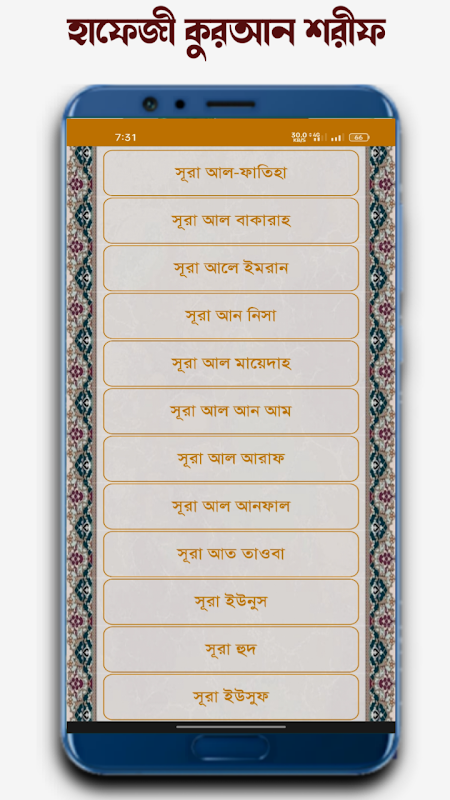 হাফেজী কুরআন শরীফ
7:31 30.0 KB/S 4G 66
সূরা আল-ফাতিহা
সূরা আল বাকারাহ
সূরা আলে ইমরান
সূরা আন নিসা
সূরা আল মায়েদাহ
সূরা আল আন আম
সূরা আল আরাফ
সূরা আল আনফাল
সূরা আত তাওবা
সূরা ইউনুস
সূরা হুদ
সূরা ইউসুফ